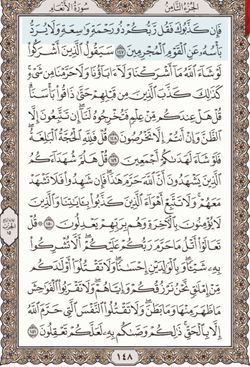 الجزء الثامن
سورة الأنعام
فَإِن كَذَّبُوكَ فَقُل رَّبُّكُمْ ذُو رَحْمَةٍ وَٰسِعَةٍ وَلَا يُرَدُّ
بَأْسُهُۥ عَنِ ٱلْقَوْمِ ٱلْمُجْرِمِينَ ١٤٧ سَيَقُولُ ٱلَّذِينَ أَشْرَكُوا۟
لَوْ شَآءَ ٱللَّهُ مَآ أَشْرَكْنَا وَلَآ ءَابَآؤُنَا وَلَا حَرَّمْنَا مِن شَىْءٍ
كَذَٰلِكَ كَذَّبَ ٱلَّذِينَ مِن قَبْلِهِمْ حَتَّىٰ ذَاقُوا۟ بَأْسَنَا
قُلْ هَلْ عِندَكُم مِّنْ عِلْمٍ فَتُخْرِجُوهُ لَنَآ إِن تَتَّبِعُونَ إِلَّا
ٱلظَّنَّ وَإِنْ أَنتُمْ إِلَّا تَخْرُصُونَ ١٤٨ قُلْ فَلِلَّهِ ٱلْحُجَّةُ ٱلْبَٰلِغَةُ
فَلَوْ شَآءَ لَهَدَىٰكُمْ أَجْمَعِينَ ١٤٩ قُلْ هَلُمَّ شُهَدَآءَكُمُ
ٱلَّذِينَ يَشْهَدُونَ أَنَّ ٱللَّهَ حَرَّمَ هَٰذَا فَإِن شَهِدُوا۟ فَلَا تَشْهَدْ
مَعَهُمْ وَلَا تَتَّبِعْ أَهْوَآءَ ٱلَّذِينَ كَذَّبُوا۟ بِـَٔايَٰتِنَا وَٱلَّذِينَ
لَا يُؤْمِنُونَ بِٱلْـَٔاخِرَةِ وَهُم بِرَبِّهِمْ يَعْدِلُونَ ١٥٠ قُلْ
تَعَالَوْا۟ أَتْلُ مَا حَرَّمَ رَبُّكُمْ عَلَيْكُمْ أَلَّا تُشْرِكُوا۟
بِهِۦ شَيْـًٔا وَبِٱلْوَٰلِدَيْنِ إِحْسَٰنًا وَلَا تَقْتُلُوٓا۟ أَوْلَٰدَكُم
مِّنْ إِمْلَٰقٍ نَّحْنُ نَرْزُقُكُمْ وَإِيَّاهُمْ وَلَا تَقْرَبُوا۟ ٱلْفَوَٰحِشَ
مَا ظَهَرَ مِنْهَا وَمَا بَطَنَ وَلَا تَقْتُلُوا۟ ٱلنَّفْسَ ٱلَّتِى حَرَّمَ ٱللَّهُ
إِلَّا بِٱلْحَقِّ ذَٰلِكُمْ وَصَّىٰكُم بِهِۦ لَعَلَّكُمْ تَعْقِلُونَ ١٥١
١٤٨